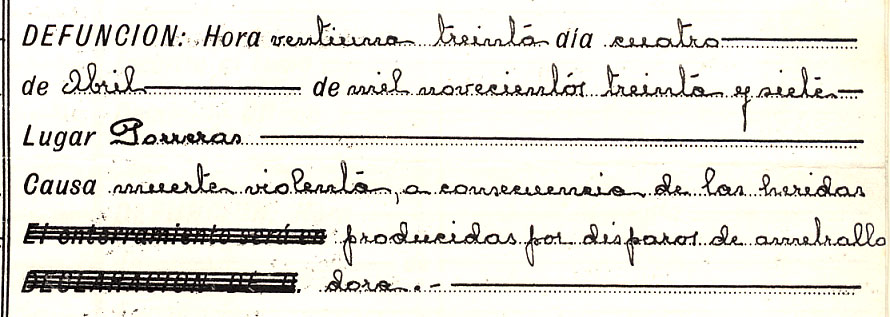 DEFUNCION: Hora ventiuna treinta día cuatro
de Abril de mil novecientos treinta y siete
Lugar Porreras
Causa muerte violenta, a consecuencia de las heridas
El enterramiento será en producidas por disparos de ametralla
DECLARACION DE D. dora.-